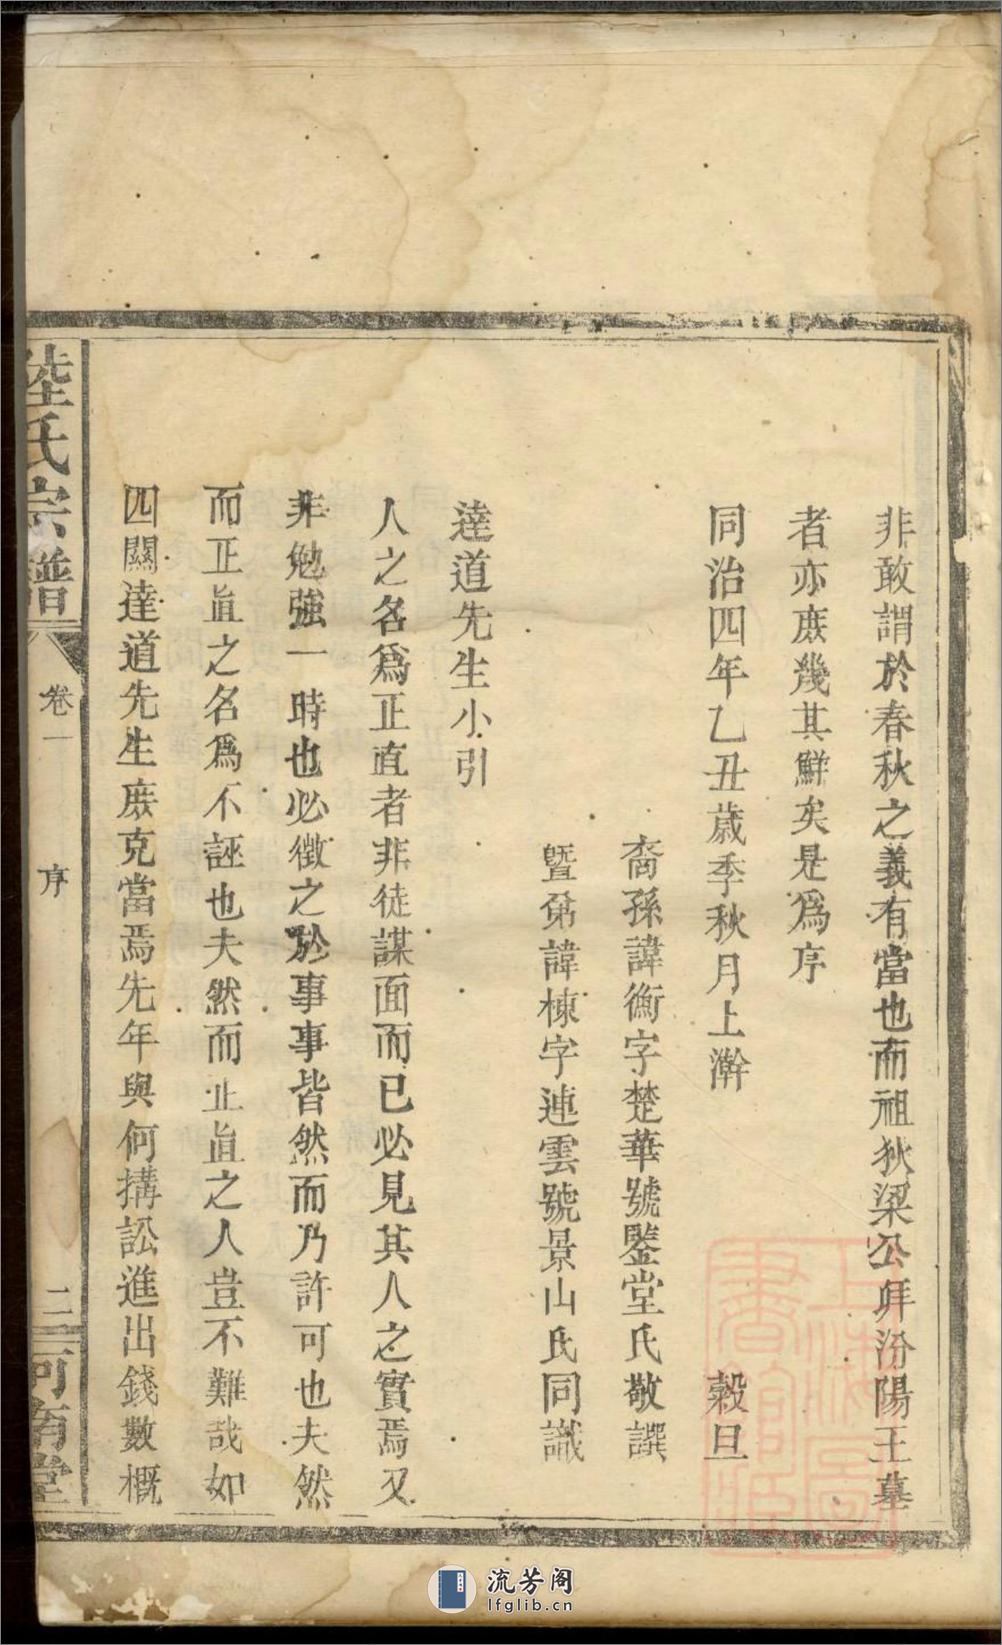 非敢謂於春秋之義有當也而祖狄梁公拜汾陽王墓
者亦庶幾其鮮矣是爲序
同治四年乙丑歲季秋月上澣 榖旦
裔孫諱衡字楚華號鑒堂氏敬譔
暨弟諱棟字連雲號景山氏同識
達道先生小引
人之名爲正直者非徒謀面而已必見其人之實焉又
非勉強一時也必徵之於事事皆然而乃許可也夫然
而正直之名爲不誣也夫然而正直之人豈不難哉如
四關達道先生庶克當焉先年與何搆訟進出錢數概
陸氏宗譜 卷一 序 二 河南堂
上海圖書館藏
流芳阁
lfglib.cn